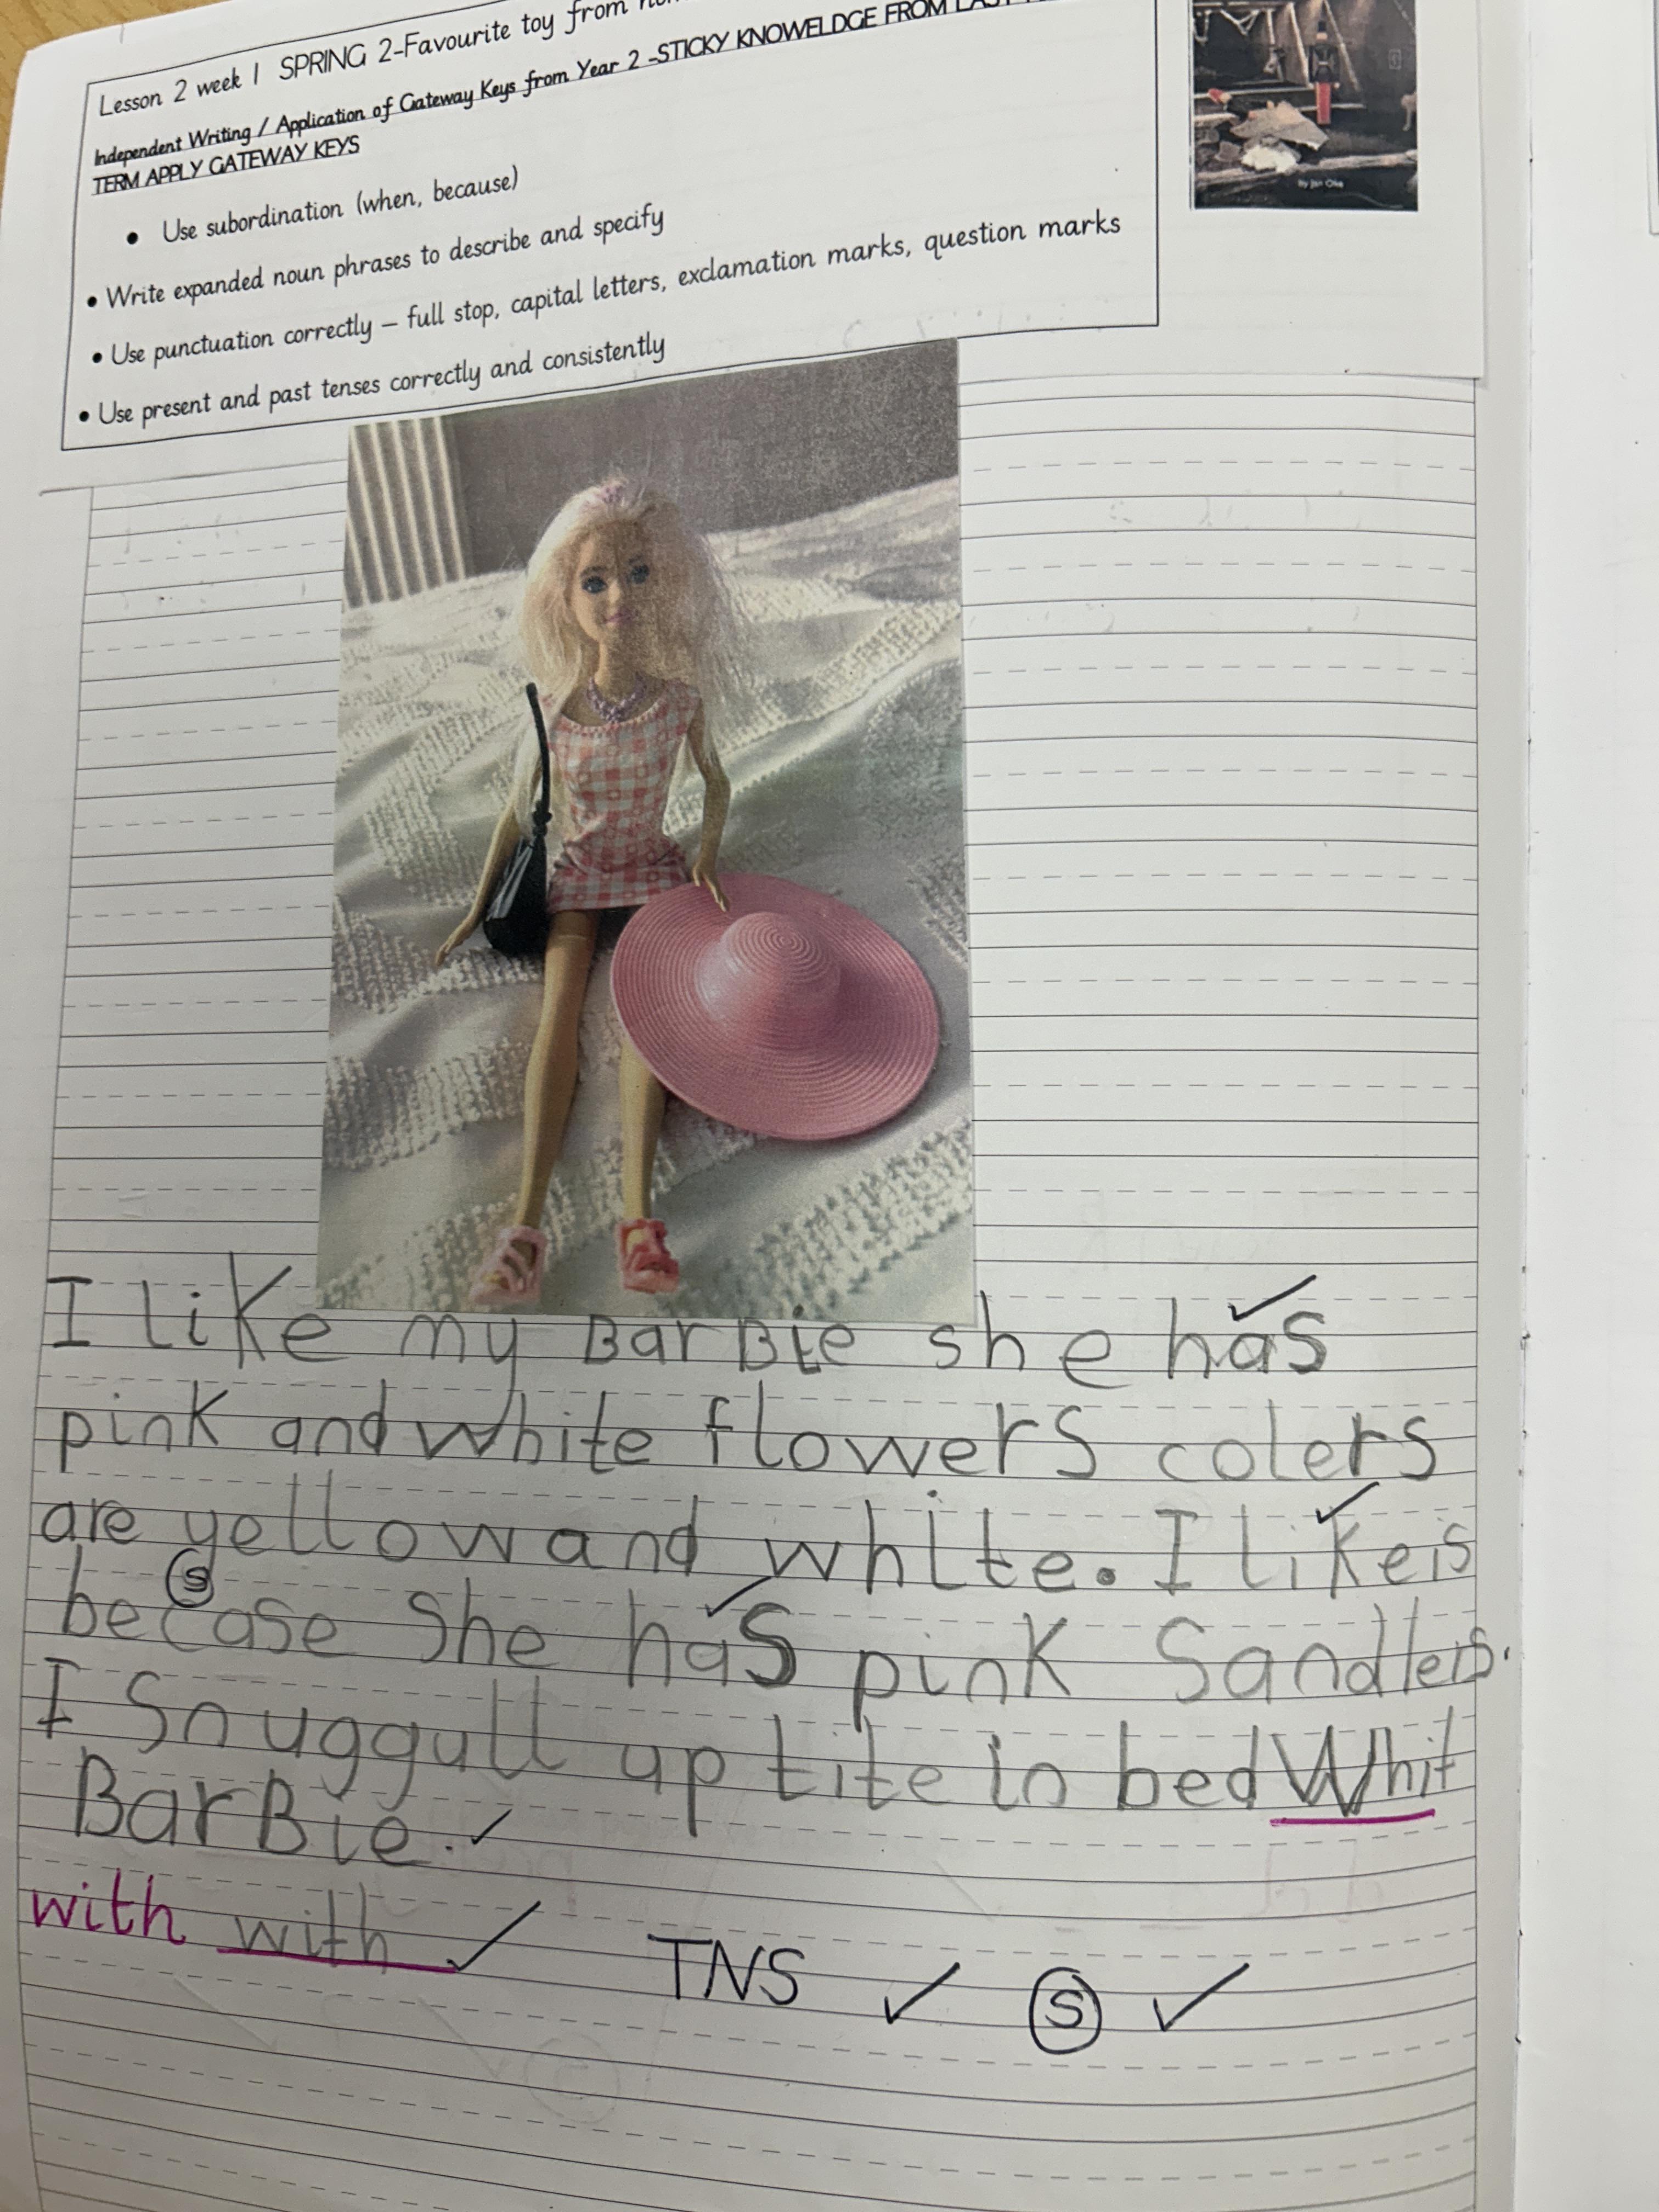 Lesson 2 week 1 SPRING 2-Favourite toy from
Independent Writing / Application of Gateway Keys from Year 2 -STICKY KNOWELDGE FROM LAST
TERM APPLY GATEWAY KEYS
• Use subordination (when, because)
• Write expanded noun phrases to describe and specify
• Use punctuation correctly – full stop, capital letters, exclamation marks, question marks
• Use present and past tenses correctly and consistently
by Jan Oke
I like my BarBie she has
pink and white flowers colers
are yellow and white. I like is
S
becase She has pink Sandlers.
I Snuggull up tite in bed Whit
BarBie.
with with TNS S